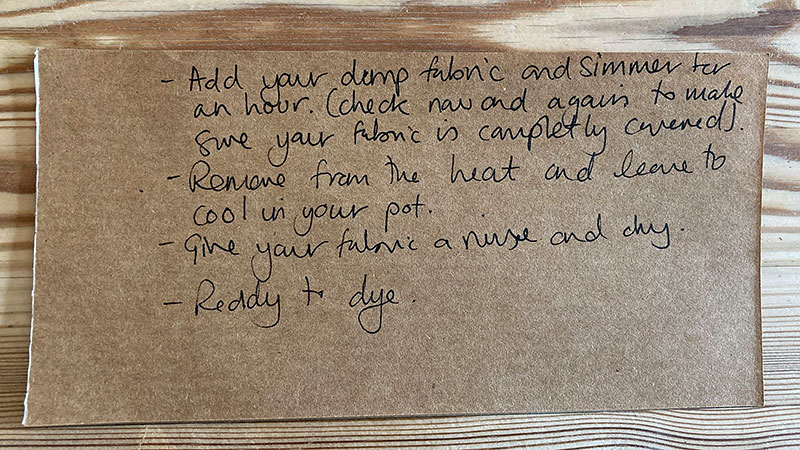 - Add your damp fabric and simmer for
an hour. (check now and again to make
sure your fabric is completly covered).
- Remove from the heat and leave to
cool in your pot.
- Give your fabric a rinse and dry.
- Reddy to dye.